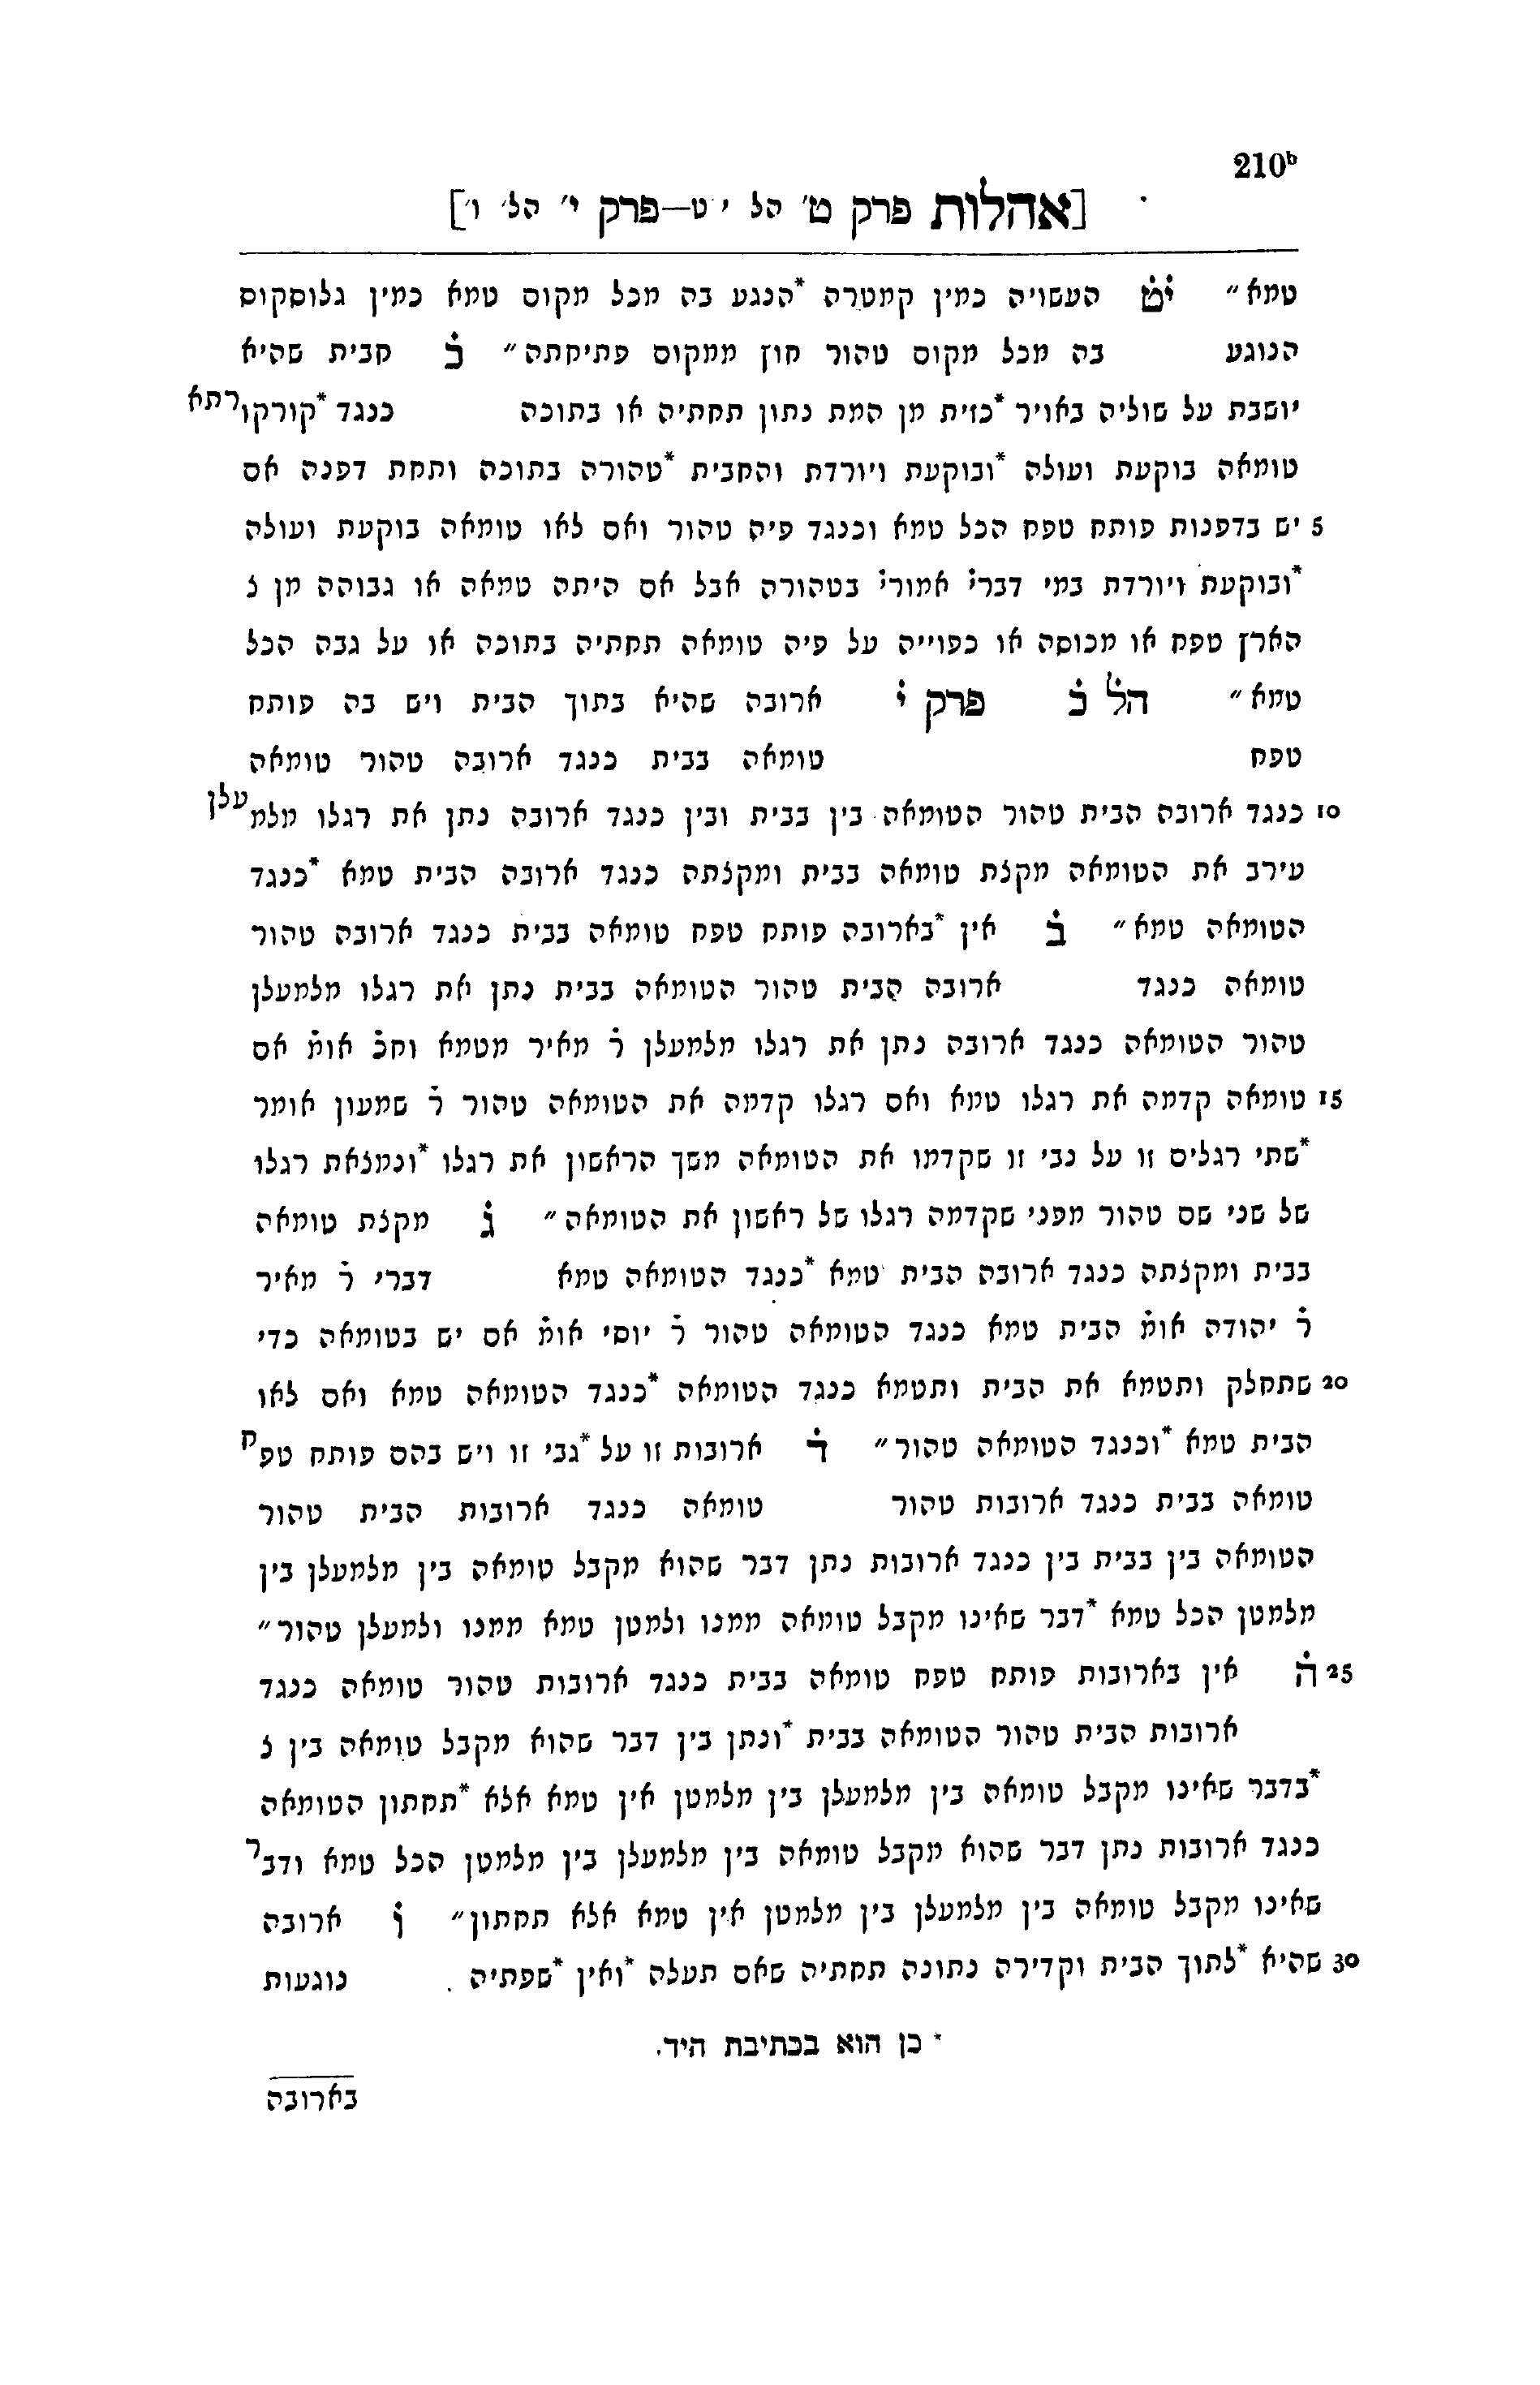 210ᵇ
[אהלות פרק ט׳ הל׳ י״ט—פרק י׳ הל׳ ו׳]
טמא״ יט העשויה כמין קמטרה *הנגע בה מכל מקום טמא כמין גלוסקוס
הנוגע בה מכל מקום טהור חוץ ממקום פתיחתה״ כ חבית שהיא
יושבת על שוליה באויר *כזית מן המת נתון תחתיה או בתוכה כנגד *קורקורתא
טומאה בוקעת ועולה *ובוקעת ויורדת והחבית *טהורה בתוכה ותחת דפנה אם
5 יש בדפנות פותח טפח הכל טמא וכנגד פיה טהור ואם לאו טומאה בוקעת ועולה
*ובוקעת ויורדת במי דברי׳ אמורי׳ בטהורה אבל אם היתה טמאה או גבוהה מן צ
הארץ טפח או מכוסה או כפוייה על פיה טומאה תחתיה בתוכה או על גבה הכל
טמא״ הל כ פרק י ארובה שהיא בתוך הבית ויש בה פותח
טפח טומאה בבית כנגד ארובה טהור טומאה
10 כנגד ארובה הבית טהור הטומאה בין בבית ובין כנגד ארובה נתן את רגלו מלמעלן
עירב את הטומאה מקצת טומאה בבית ומקצתה כנגד ארובה הבית טמא *כנגד
הטומאה טמא״ ב אין *בארובה פותח טפח טומאה בבית כנגד ארובה טהור
טומאה כנגד ארובה הבית טהור הטומאה בבית נתן את רגלו מלמעלן
טהור הטומאה כנגד ארובה נתן את רגלו מלמעלן ר׳ מאיר מטמא וחכ׳ אומ׳ אם
15 טומאה קדמה את רגלו טמא ואם רגלו קדמה את הטומאה טהור ר׳ שמעון אומר
*שתי רגלים זו על גבי זו שקדמו את הטומאה משך הראשון את רגלו *ונמצאת רגלו
של שני שם טהור מפני שקדמה רגלו של ראשון את הטומאה״ ג מקצת טומאה
בבית ומקצתה כנגד ארובה הבית טמא *כנגד הטומאה טמא דברי ר׳ מאיר
ר׳ יהודה אומ׳ הבית טמא כנגד הטומאה טהור ר׳ יוסי אומ׳ אם יש בטומאה כדי
20 שתחלק ותטמא את הבית ותטמא כנגד הטומאה *כנגד הטומאה טמא ואם לאו
הבית טמא *וכנגד הטומאה טהור״ ד ארובות זו על *גבי זו ויש בהם פותח טפח
טומאה בבית כנגד ארובות טהור טומאה כנגד ארובות הבית טהור
הטומאה בין בבית בין כנגד ארובות נתן דבר שהוא מקבל טומאה בין מלמעלן בין
מלמטן הכל טמא *דבר שאינו מקבל טומאה ממנו ולמטן טמא ממנו ולמעלן טהור״
25 ה אין בארובות פותח טפח טומאה בבית כנגד ארובות טהור טומאה כנגד
ארובות הבית טהור הטומאה בבית *ונתן בין דבר שהוא מקבל טומאה בין צ
*בדבר שאינו מקבל טומאה בין מלמעלן בין מלמטן אין טמא אלא *תחתון הטומאה
כנגד ארובות נתן דבר שהוא מקבל טומאה בין מלמעלן בין מלמטן הכל טמא ודבר
שאינו מקבל טומאה בין מלמעלן בין מלמטן אין טמא אלא תחתון״ ו ארובה
30 שהיא *לתוך הבית וקדירה נתונה תחתיה שאם תעלה *ואין *שפתיה נוגעות
* כן הוא בכתיבת היד.
בארובה